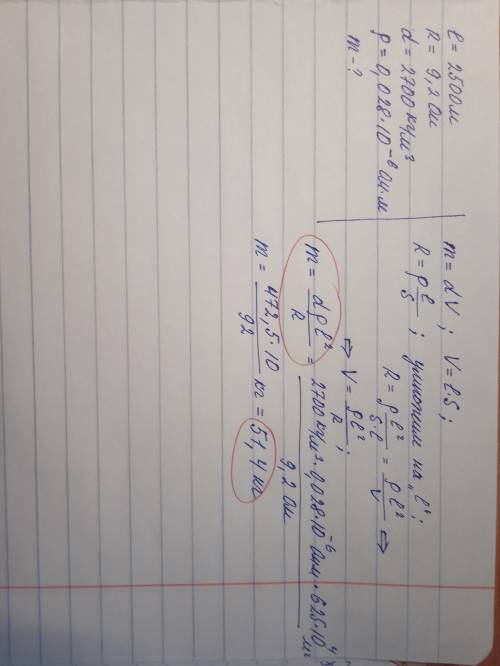 l = 2500 м
R = 9,2 Ом
d = 2700 кг/м³
ρ = 0,028·10⁻⁶ Ом·м
m - ?
m = dV ; V = l·S ;
R = ρ l/S ; умножим на „l“ ;
R = ρl²/S·l = ρl²/V ⇒
⇒ V = ρl²/R ;
m = dρl²/R = 2700 кг/м³·0,028·10⁻⁶ Ом·м · 625·10⁴ м²/9,2 Ом
m = 472,5·10/92 кг = 51,4 кг